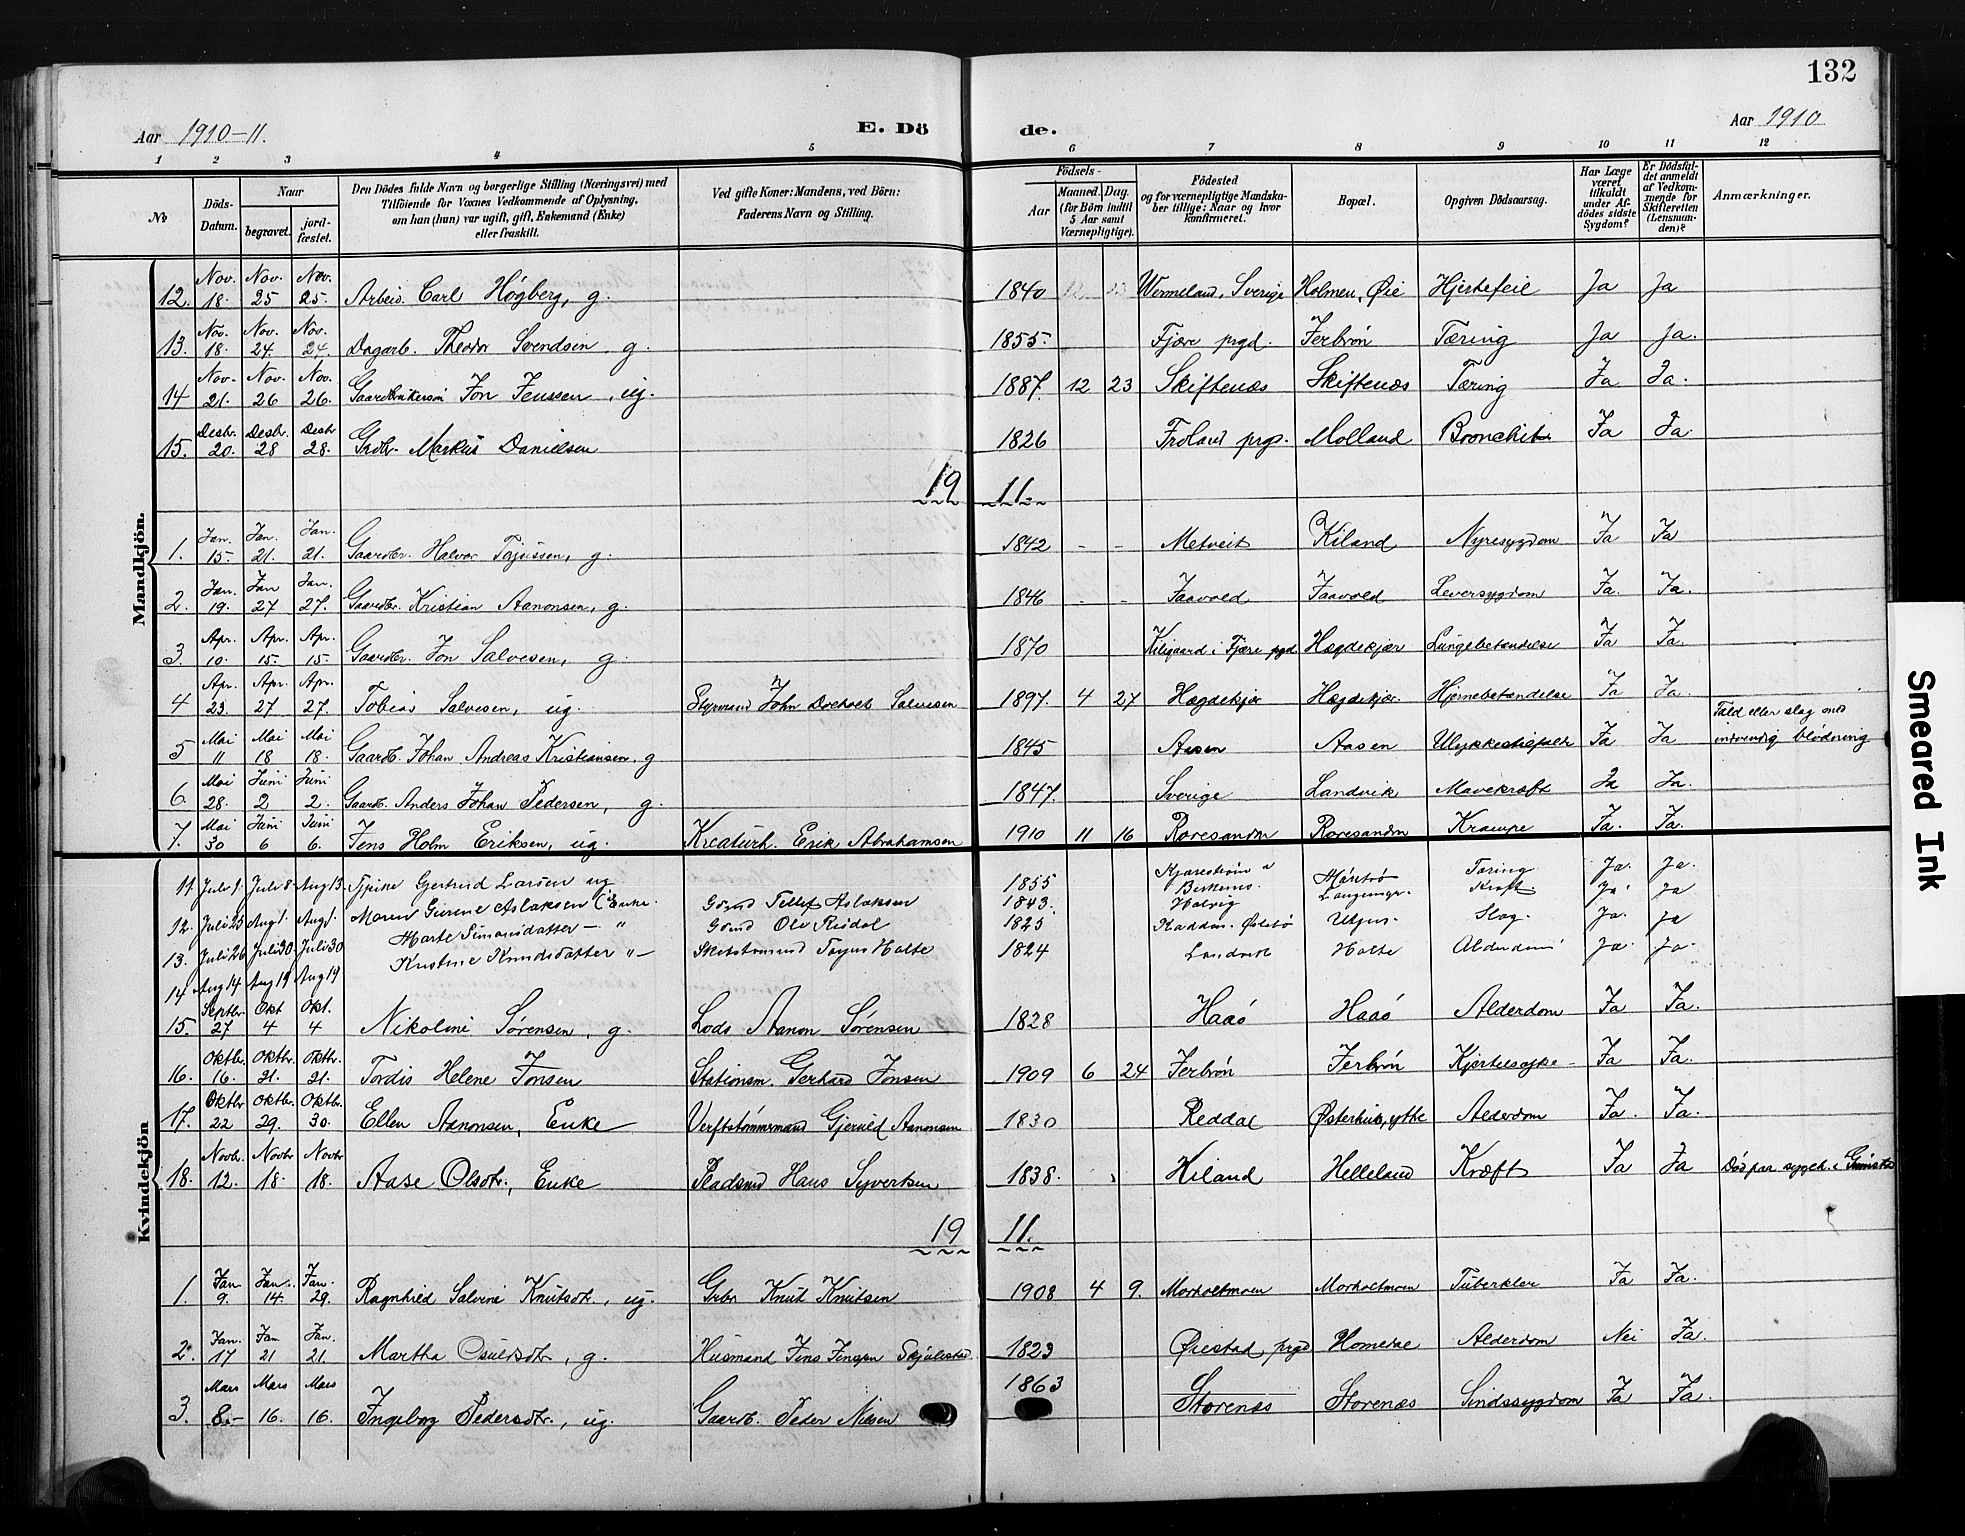 132
Aar 1910-11. E. Dö de. Aar 1910
1 2 3 4 5 6 7 8 9 10 11 12
No
Döds-Datum.
Naar
begravet.
jord-fæstet.
Den Dödes fulde Navn og borgerlige Stilling (Næringsvei) med
Tilföiende for Voxnes Vedkommende af Oplysning,
om han (hun) var ugift, gift, Enkemand (Enke)
eller fraskilt.
Ved gifte Koner: Mandens, ved Börn:
Faderens Navn og Stilling.
Födsels-
Aar
Maaned. Dag.
(for Börn indtil
5 Aar samt
Værnepligtige).
Födested
og for værnepligtige Mandska-
ber tillige: Naar og hvor
konfirmeret.
Bopæl.
Opgiven Dödsaarsag.
Har Læge
været
tilkaldt
under Af-
dödes sidste
Sygdom?
Er Dödsfal-
det anmeldt
af Vedkom-
mende for
Skifteretten
(Lensman-
den)?
Anmærkninger.
Mandkjön.
12. Nov. 18. Nov. 25 Nov. 25. Arbeid. Carl Högberg, g. 1840 Wermeland, Sverige Holmen, Øie Hjertefeil Ja Ja
13. Nov. 18. Nov. 24. Nov. 24. Dagarb. Theodor Svendsen, g. 1855. Fjære prgd. Ferbrön Tæring Ja Ja.
14 Nov. 21. Nov. 26 Nov. 26. Jon Jenssen, ug. 1887. 12 23 Skiftenæs Skiftenæs Tæring Ja Ja.
15. Desbr. 20. Desbr. 28 Desbr 28. Grdbr. Markus Danielsen 1826 Froland prgd. Molland Bronchit Ja Ja.
19 11.
1. Jan. 15. Jan. 21. Jan. 21. Gaardbr. Halvor Tajussen, g. 1842 - - Metveit Kiland Nyresygdom Ja Ja
2. Jan. 19. Jan 27 Jan. 27. Gaardbr. Kristian Aanonsen, g. 1846 - - Faavold Faavold Leversygdom Ja. Ja.
3. Apr. 10. Apr. 15. Apr. 15. Gaardbr. Jon Salvesen, g. 1870 Kilegaard i Fjære pgd Hægdekjær Lungebetændelse Ja Ja.
4 Apr. 23. Apr. 27 Apr. 27 Tobias Salvesen, ug. Styrmand John Salvesen 1897. 4 27 Hægdekjær Hægdekjær. Hjernebetændelse Ja Ja.
5 Mai 11 Mai 18 Mai 18. Gaardb. Johan Andreas Kristiansen, g 1845 Aasen Aasen Ulykkestilfælde Ja Ja Fald eller slag med
indvendig blödning
6. Mai 28. Juni 2 Juni 2. Gaardb. Anders Johan Pedersen, g. 1847. Sverige Landvik Mavekræft Ja Ja.
7. Mai 30 Juni 6 Juni 6. Jens Holm Eriksen, ug. Kreaturh. Erik Abrahamsen 1910 11 16 Roresanden Roresanden Krampe Ja. Ja.
Kvindekjön
11. Juli 1. Juli 8. Aug 13. Gjertrud Larsen ug 1855 Tæring Ja. Ja.
12. Juli 25 Aug 1. Aug 1. Maren Gurine Aslaksen (Enke. Gmd Tellef Aslaksen 1843. Kræft Ja. Ja
13. Juli 26 Juli 30. Juli 30 Marte Simonsdatter - " Gmd Ole Reidal 1825 Slag. Ja. Ja
14 Aug 14 Aug 19 Aug 19 Kristine Knudsdatter " - Tarjus Holte 1824 Landvik Holte Alderdom Ja. Ja.
15. Septbr. 27 Okt 4 Okt. 4 Nikoline Sørensen, g. Lods Aanon Sørensen 1828 Haaö Haaö Alderdom Ja Ja.
16. Oktbr. 16. Oktbr. 21. Oktbr. 21. Tordis Helene Jonsen Stationsm. Gerhard Jonsen 1909 6 24 Ferbrön Ferbrön Kjertelsyke - Ja Ja.
17. Oktbr 22 Oktbr. 29. Oktbr. 30. Ellen Aanonsen, Enke Verftstömmermand Gjeruld Aanonsen 1830 Reddal Østerhus, ytte Alderdom Ja. Ja.
18. Novbr. 12. Novbr 18. Novbr 18. Aase Olsdtr., Enke Pladsmd Hans Syvertsen 1838. Kiland Helleland Kræft Ja Ja Död paa sygeh. i Grimstad
19 11.
1. Jan 9. Jan. 14. Jan. 29. Ragnhild Salvine Knutsdt., ug. Grbr Knut Knutsen 1908 4 9. Morholtmoen Morholtmoen Tuberkler Ja Ja.
2. Jan. 17 Jan. 21 Jan. 21. Martha Osuldsdt., g. Husmand Jens Jenssen Skjulestad 1823 Øiestad, prgd Homdal Alderdom Nei Ja.
3. Mars 8. Mars 16. Mars 16. Ingeborg Pedersdt., ug. Gaardb. Peder Nilsen 1863 Storenæs Storenæs Sindssygdom Ja Ja.
Smeared Ink